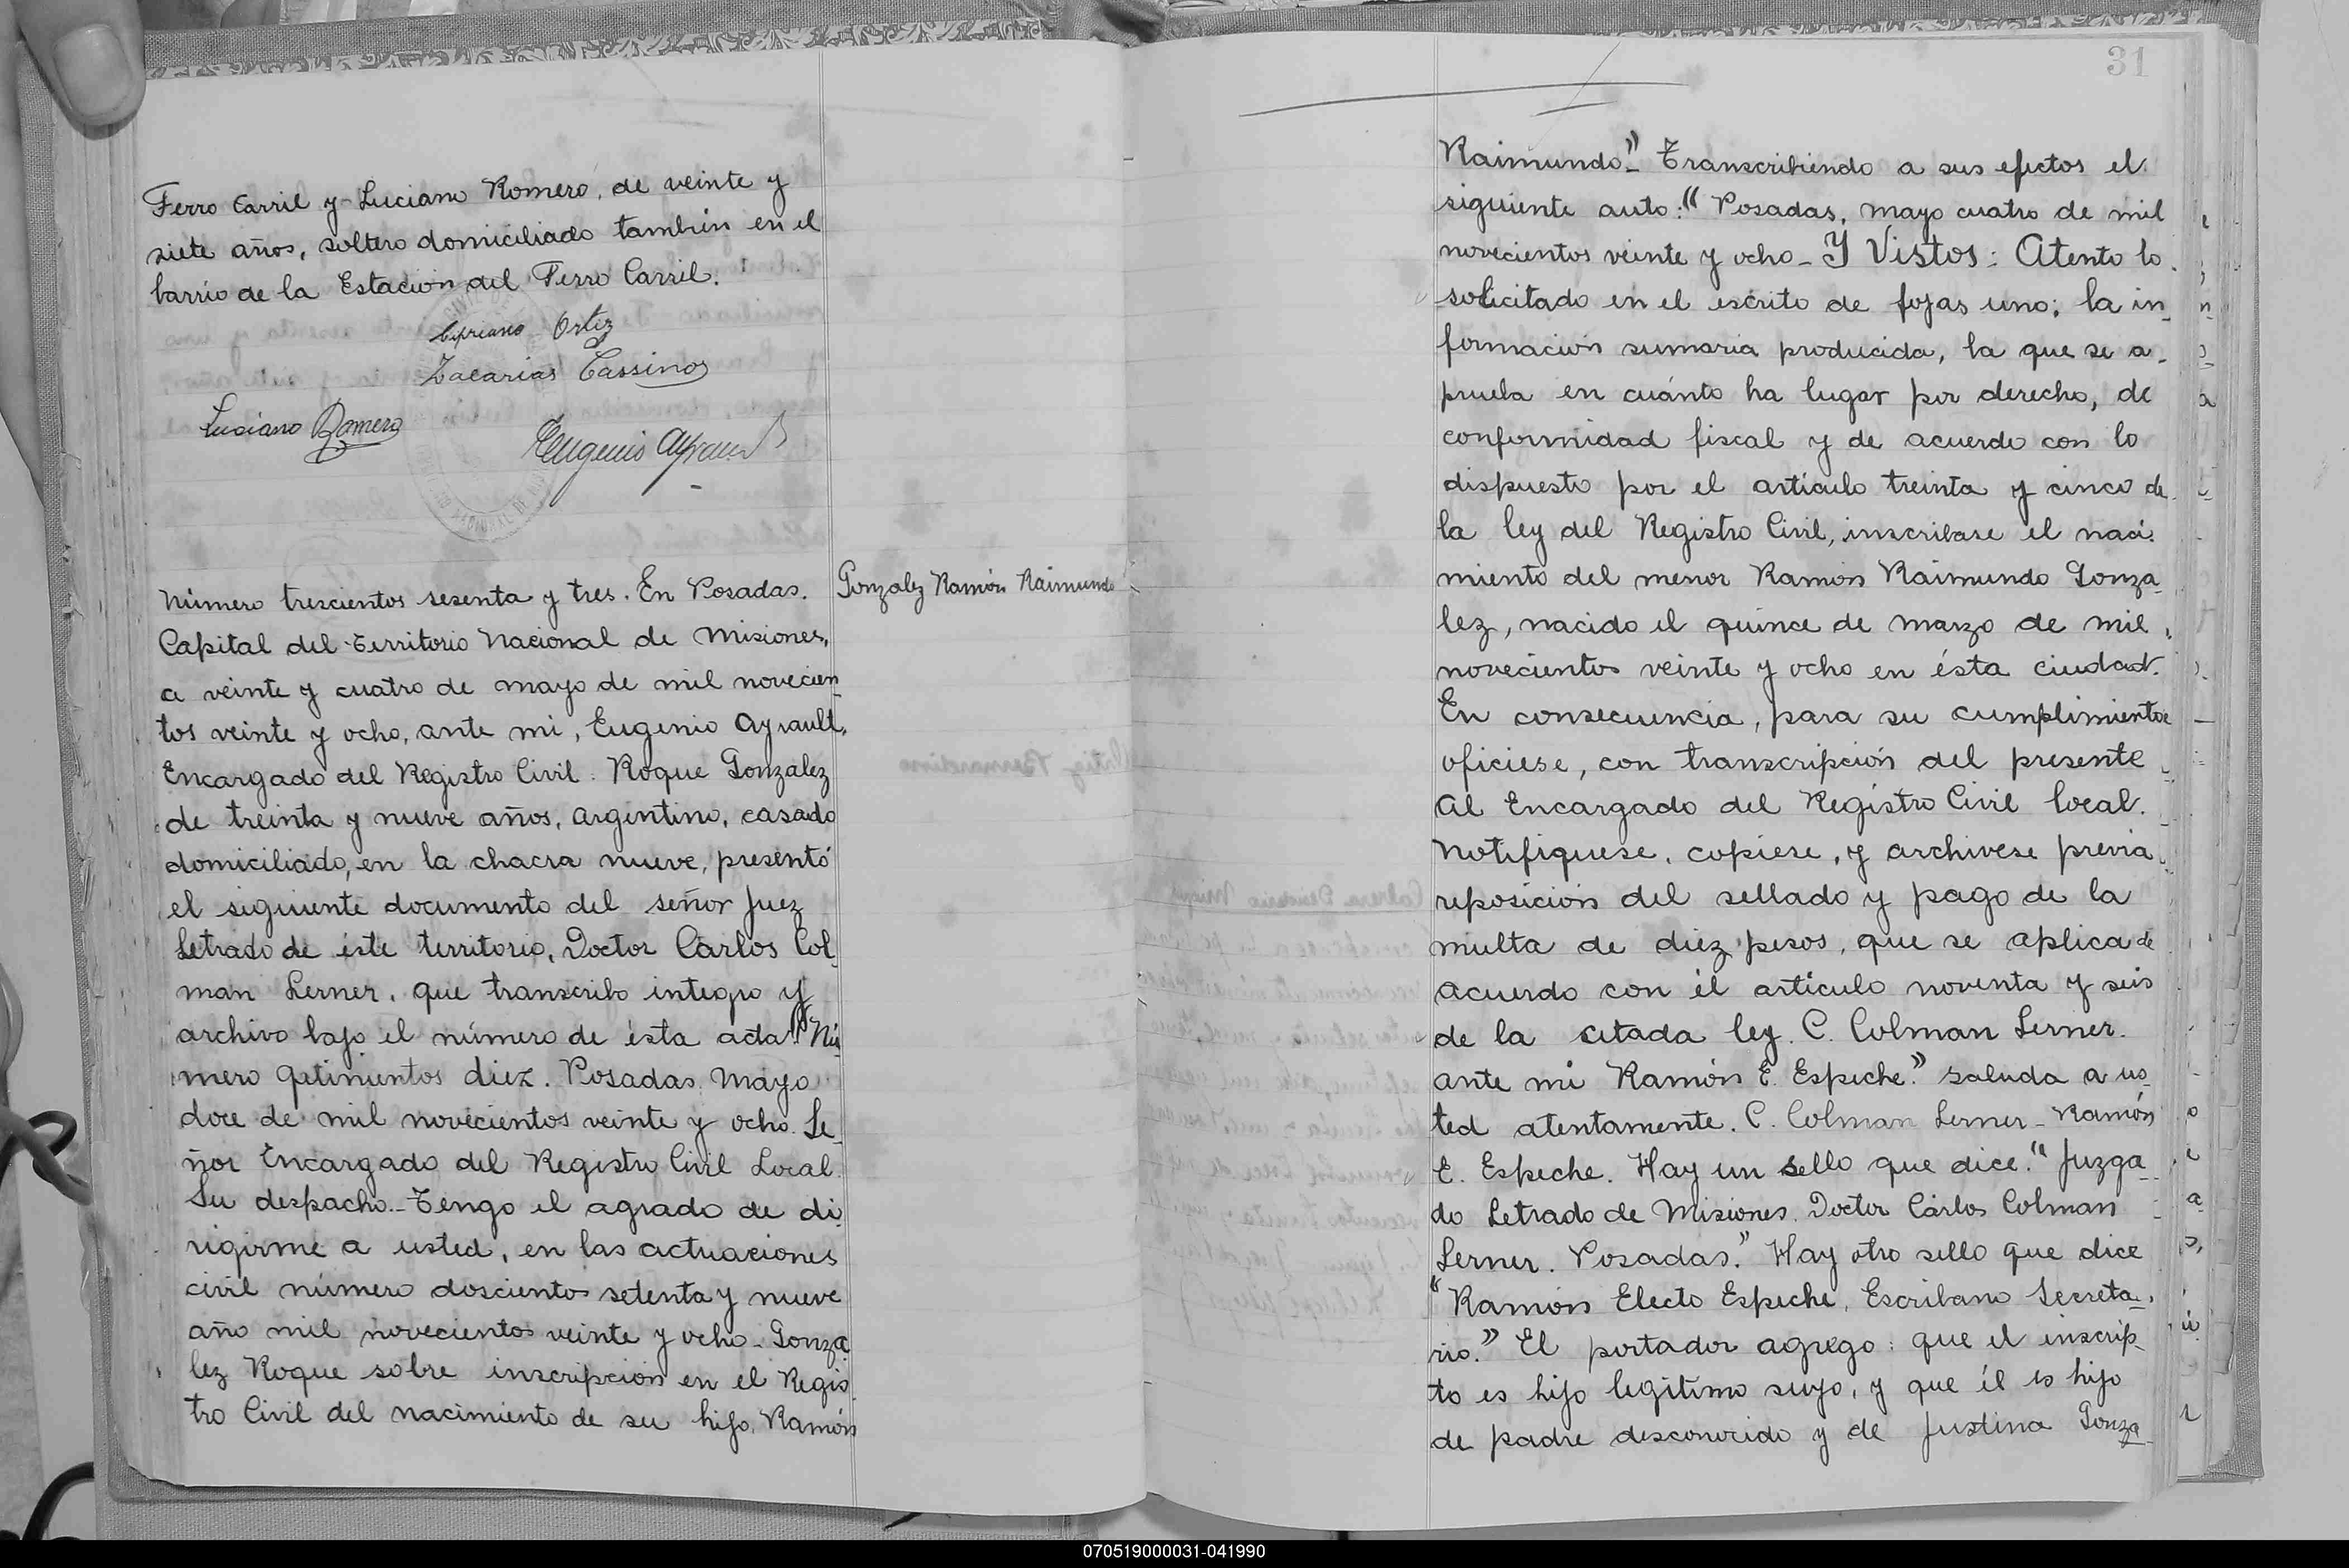 Ferro Carril y Luciano Romero, de veinte y
siete años, soltero domiciliado tambien en el
barrio de la Estacion del Ferro Carril.
Cipriano Ortiz
Zacarias Cassino
Luciano Romero
Eugenio Ayrault
Número trescientos sesenta y tres. En Posadas.
Capital del Territorio Nacional de Misiones,
a veinte y cuatro de mayo de mil novecien
tos veinte y ocho, ante mi, Eugenio Ayrault,
Encargado del Registro Civil: Roque Gonzalez
de treinta y nueve años, argentino, casado
domiciliado, en la chacra nueve, presentó
el siguiente documento del señor Juez
Letrado de éste territorio, Doctor Carlos Col
man Lerner, que transcribo integro y
archivo bajo el número de ésta acta: "Nú
mero quinientos diez. Posadas. Mayo
doce de mil novecientos veinte y ocho. Se
ñor Encargado del Registro Civil Local.
Su despacho.- Tengo el agrado de di
rigirme a usted, en las actuaciones
civil número doscientos setenta y nueve
año mil novecientos veinte y ocho - Gonza
lez Roque sobre inscripcion en el Regis
tro Civil del nacimiento de su hijo, Ramón
Gonzalez Ramón Raimundo
31
Raimundo".- Transcribiendo a sus efectos el
siguiente auto: "Posadas, mayo cuatro de mil
novecientos veinte y ocho - Y Vistos: Atento lo
solicitado en el escrito de fojas uno; la in_
formacion sumaria producida, la que se a_
prueba en cuánto ha lugar por derecho, de
conformidad fiscal y de acuerdo con lo
dispuesto por el artículo treinta y cinco de
la ley del Registro Civil, inscribase el naci_
miento del menor Ramón Raimundo Gonza
lez, nacido el quince de marzo de mil
novecientos veinte y ocho en ésta ciudad.
En consecuencia, para su cumplimiento
oficiese, con transcripción del presente
al Encargado del Registro Civil local.
Notifiquese, copiese, y archivese previa
reposición del sellado y pago de la
multa de diez pesos, que se aplica de
acuerdo con el articulo noventa y seis
de la citada ley. C. Colman Lerner.
ante mi Ramón E. Espeche." Saluda a us_
ted atentamente. C. Colman Lerner - Ramón
E. Espeche. Hay un sello que dice: "Juzga_
do Letrado de Misiones. Doctor Cárlos Colman
Lerner. Posadas." Hay otro sello que dice
"Ramón Electo Espeche, Escribano Secreta_
rio." El portador agrego: que el inscrip_
to es hijo legítimo suyo, y que él es hijo
de padre desconocido y de Justina Gonza_
070519000031-041990